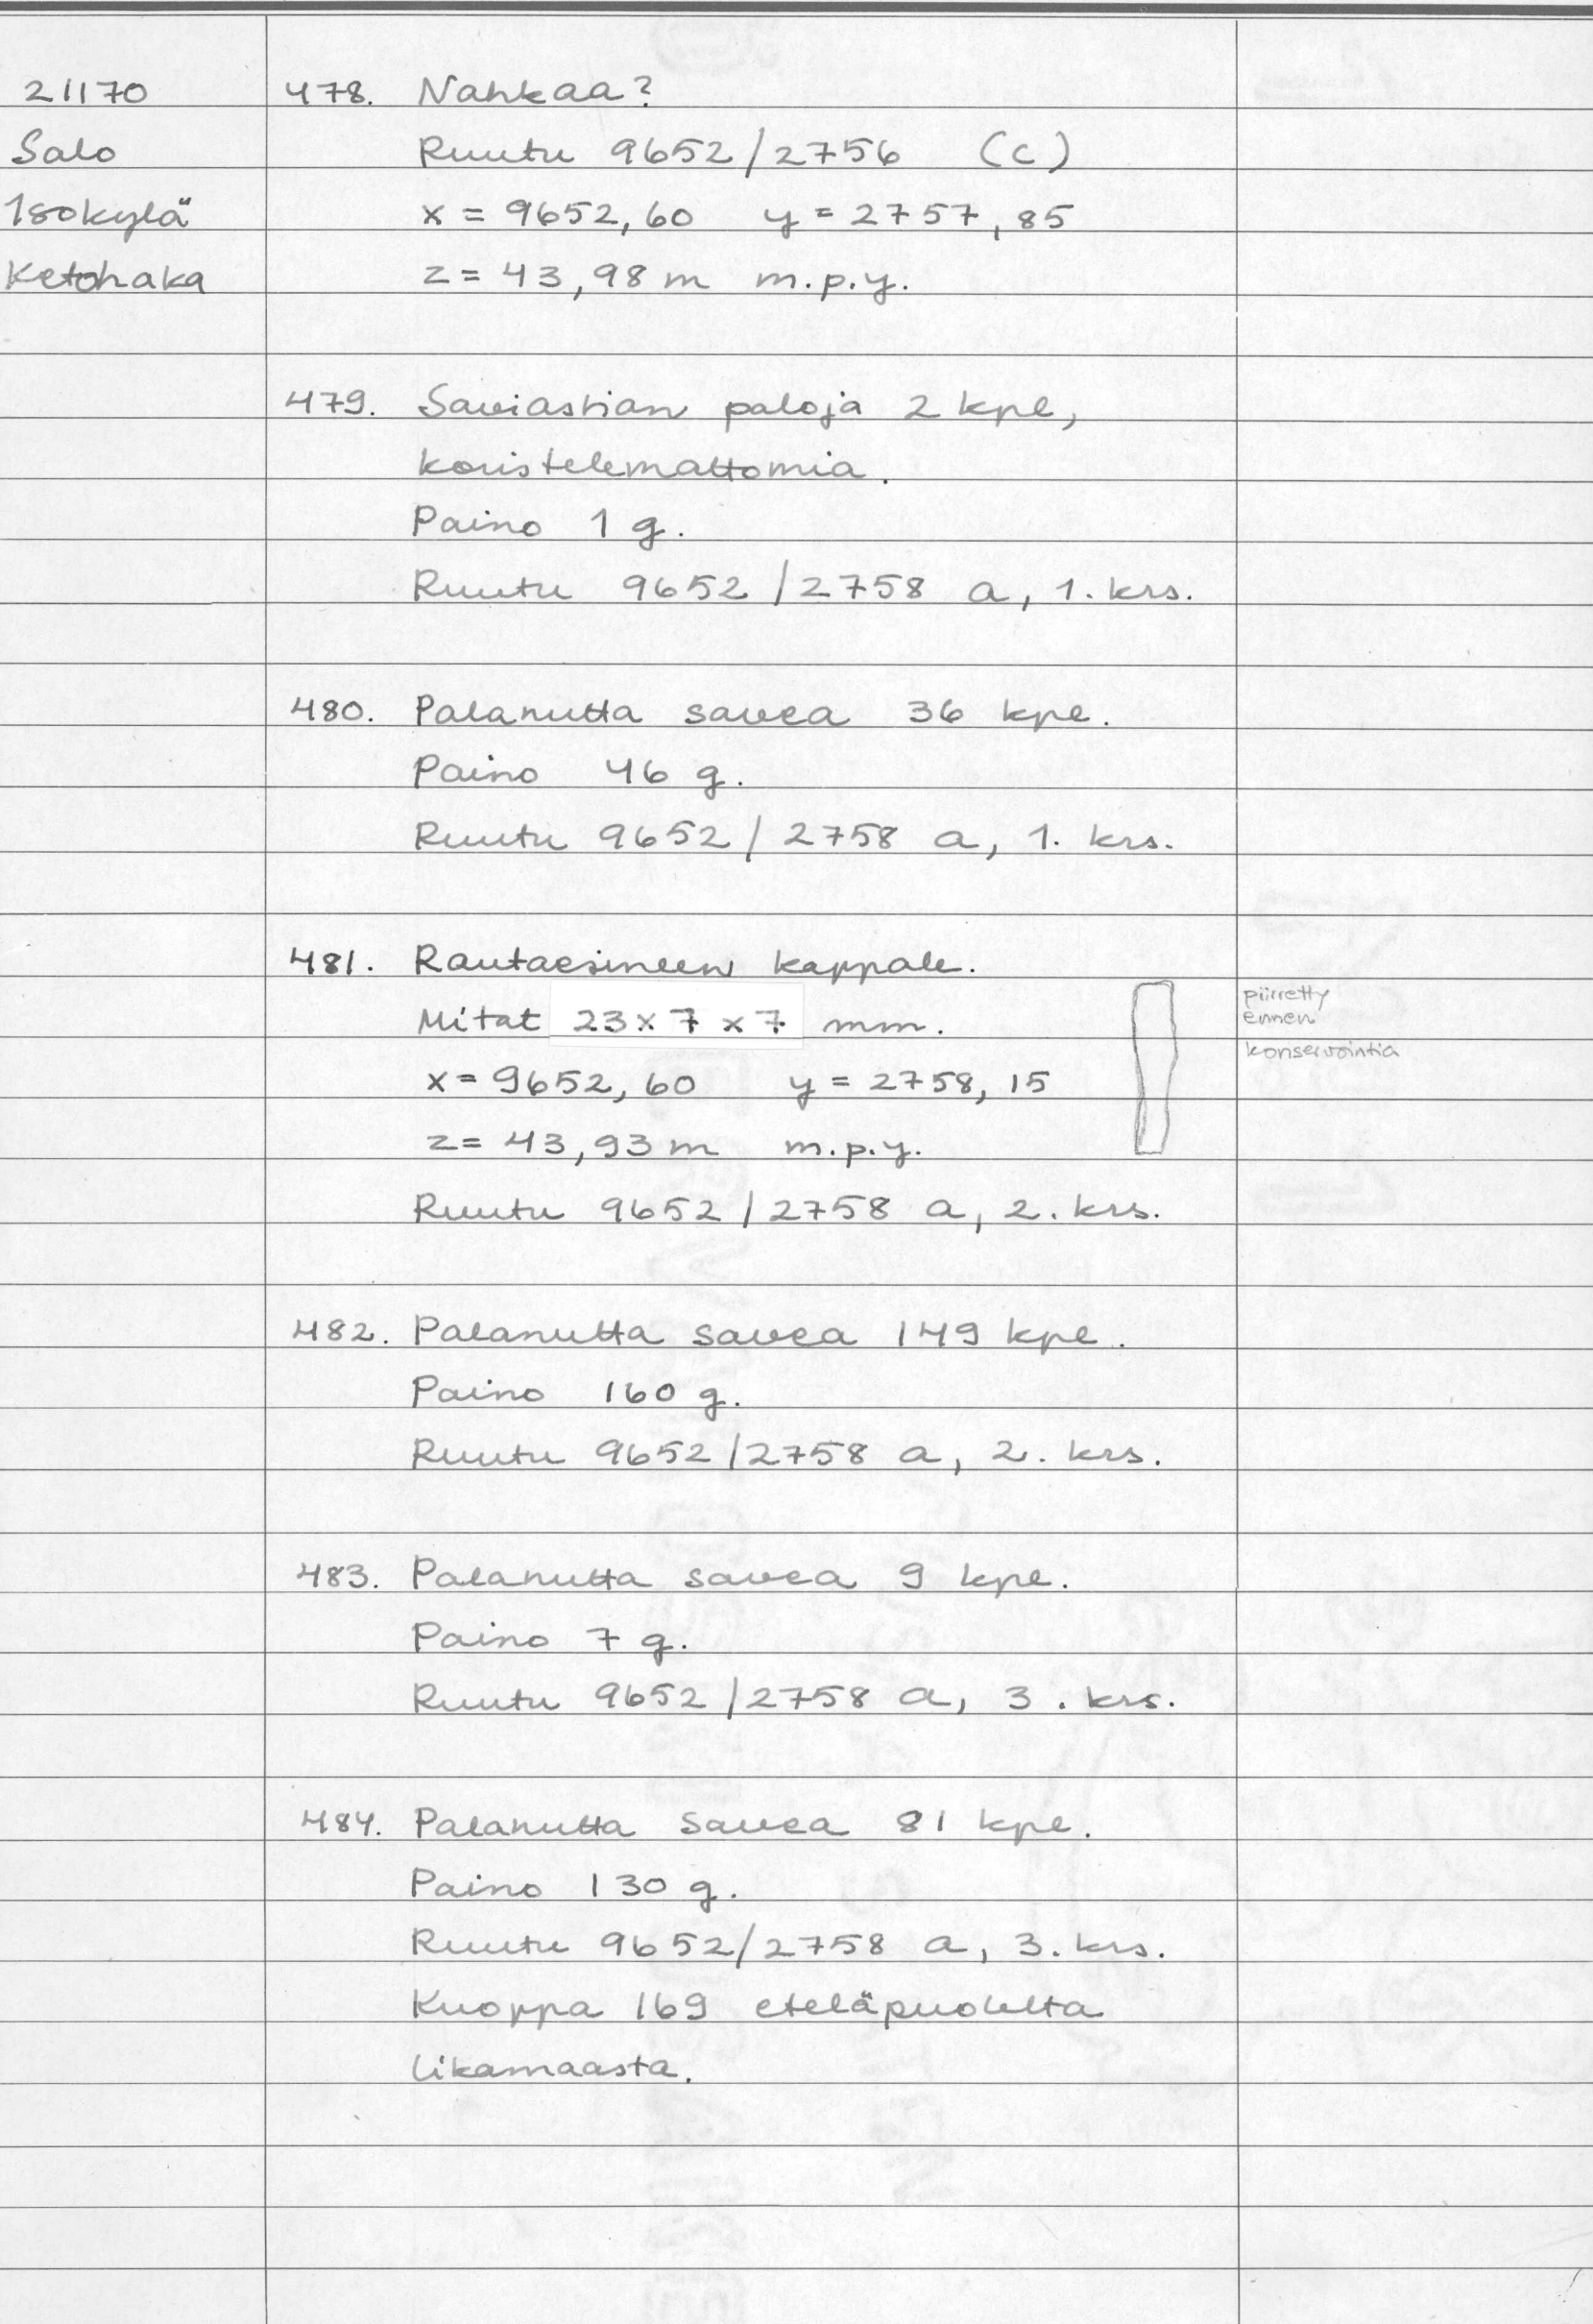 21170
Salo
Isokylä
Ketohaka
478. Nahkaa?
Ruutu 9652/2756 (c)
x = 9652,60 y = 2757,85
z = 43,98 m m.p.y.
479. Saviastian paloja 2 kpl,
koristelemattomia.
Paino 1 g.
Ruutu 9652/2758 a, 1. krs.
480. Palanutta savea 36 kpl.
Paino 46 g.
Ruutu 9652/2758 a, 1. krs.
481. Rautaesineen kappale.
Mitat 23 x 7 x 7 mm.
x = 9652,60 y = 2758,15
z = 43,93 m m.p.y.
Ruutu 9652/2758 a, 2. krs.
piirretty
ennen
konservointia
482. Palanutta savea 149 kpl.
Paino 160 g.
Ruutu 9652/2758 a, 2. krs.
483. Palanutta savea 9 kpl.
Paino 7 g.
Ruutu 9652/2758 a, 3. krs.
484. Palanutta savea 81 kpl.
Paino 130 g.
Ruutu 9652/2758 a, 3. krs.
Kuoppa 169 eteläpuolelta
likamaasta.